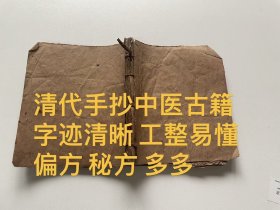 清代手抄中医古籍
字迹清晰 工整易懂
偏方 秘方 多多